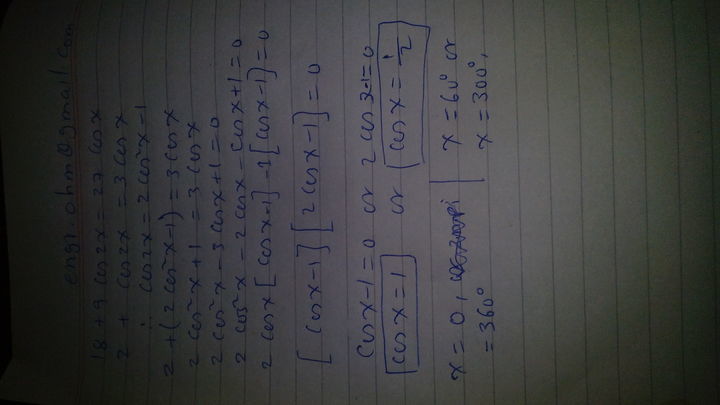 engr.ohm@gmail.com
18 + 9 cos 2x = 27 cos x
2 + cos 2x = 3 cos x
∴ cos 2x = 2 cos²x - 1
2 + (2 cos²x - 1) = 3 cos x
2 cos²x + 1 = 3 cos x
2 cos²x - 3 cos x + 1 = 0
2 cos²x - 2 cos x - cos x + 1 = 0
2 cos x [cos x - 1] - 1 [cos x - 1] = 0
[cos x - 1] [2 cos x - 1] = 0
cos x - 1 = 0 or 2 cos x - 1 = 0
cos x = 1 or cos x = 1/2
x = 0, x = 60° or
= 360° x = 300°.